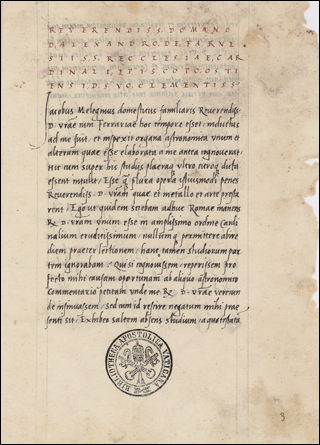 REVERENDISS. DOMINO
D. ALEXANDRO. DE FARNE
SII. S. S. R. ECCLESIAE. CAR
DINALI. EPISCOPO. OSTI
ENSI. D. SVO. CLEMENTISS.
Jacobus Melegnus domesticus familiaris Reuerendiss.
D. vrae cum Ferrariae hoc tempore esset: induchus
ad me fuit. et inspexit organa astronomica vnum et
alterum quae esse elaborata a me antea cognouerat
tis cum super his studijs plaeraque vltro citroque dicta
essent intulit: Esse &
Reuerendiss. D. vram quae et metallo et arte presta
rent. Egoque quidem scribam adhuc Romae manens
R. D. vram vnum esse in amplissimo ordine Cardi
nalium eruditissimum: nullumque permittere abire
diem praeter lectionem: hanc tamen studiorum par
tem ignorabam. Quasi cognouissem: reperissem pro
fecto mihi causam oportunam ab aliquo astronomico
Commentario petitam vnde me Re. D. vrae vererun
de insinuassem. sed num id rescire negatum mihi prae
senti sit. Exhibeo saltem absens studium, a quo
BIBLIOTHECA APOSTOLICA VATICANA
3